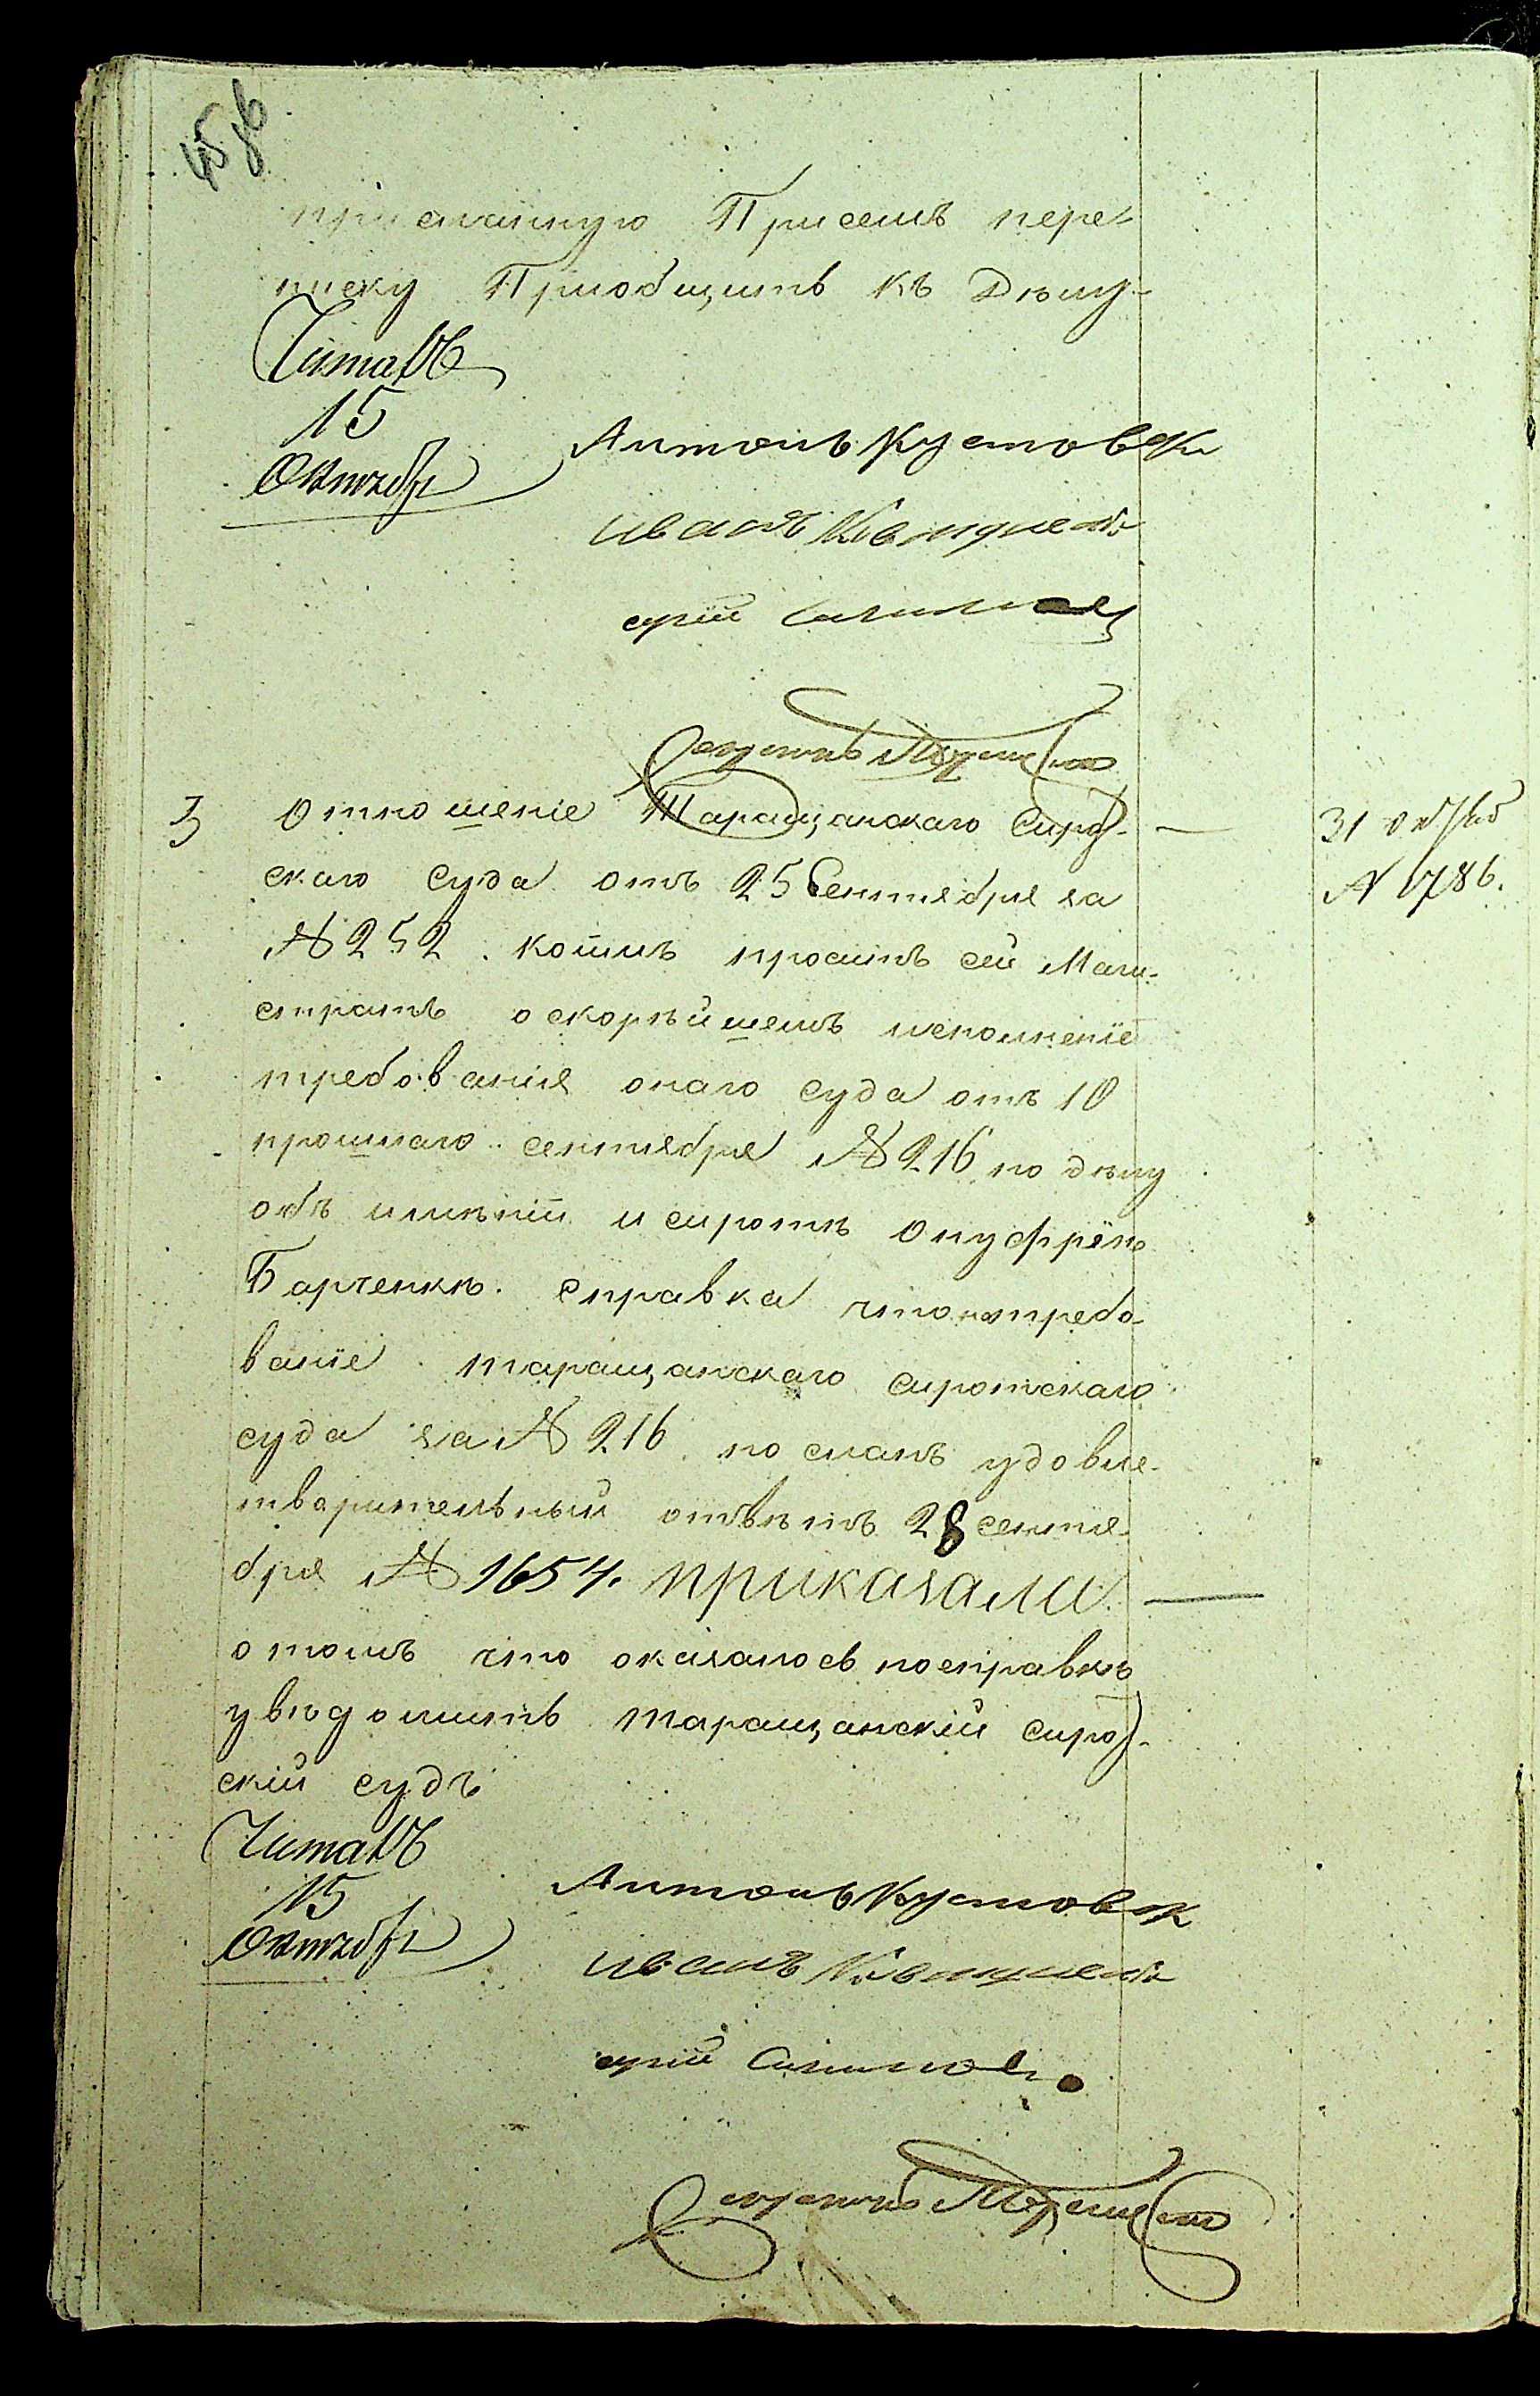 присланную Присемъ пере-
писку Приобщить къ Дѣлу-
Читалъ
15
Октября
Антонъ Кустовск
Иванъ
3 Отношение Таращанскаго Сирот-
скаго Суда отъ 25 Сентября за
№ 252. коимъ проситъ сей Маги-
стратъ о скорѣйшемъ исполненіе
требованія онаго суда отъ 10
прошлаго сентября № 216 по дѣлу
объ имѣніи и сиротѣ Онуфріѣ
Барченкѣ. Справка что на требо-
ваніе таращанскаго сиротскаго
суда за № 216 посланъ удовле-
творительный отвѣтъ 28 сентя-
бря № 1654. приказали
о томъ что оказалось по справкѣ
увѣдомить таращанскій сирот-
скій судъ
31 октяб
№ 1786.
Читалъ
15
Октября
Антонъ Кустовск
Иванъ